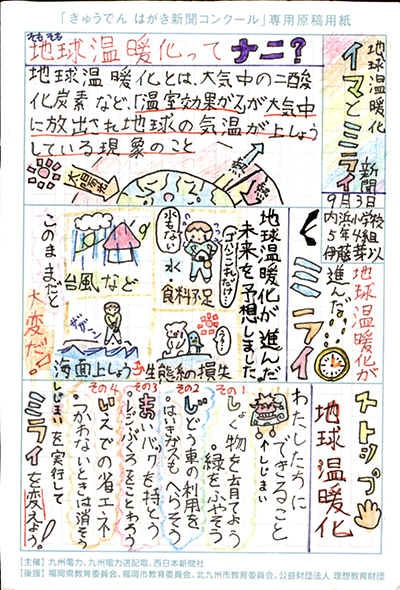 「きゅうでん はがき新聞コンクール」専用原稿用紙
そもそも
地球温暖化ってナニ？
地球温暖化とは、大気中の二酸
化炭素など、「温室効果ガス」が大気中
に放出され地球の気温が上しょう
している現象のこと
太陽光
熱
熱
地球温暖化
イマとミライ
新聞
9月3日
内浜小学校
5年4組
伊藤芽以
地球温暖化が
進んだ
ミライ
地球温暖化が進んだ
未来を予想しました。
水
食料不足
台風など
海面上しょう
生態系の損失
このままだと
大変だ！
ストップ
地球温暖化
わたしたちに
できること
〜しじまい
その1
しょく物を育てよう
。緑をふやそう
その2
じどう車の利用を
。はい気ガスもへらそう
その3
まいバックを持とう
。レジぶくろをことわろう
その4
いえでの省エネ
。つかわないときは消そう
しじまいを実行して
ミライを変えよう！
【主催】九州電力、九州電力送配電、西日本新聞社
【後援】福岡県教育委員会、福岡市教育委員会、北九州市教育委員会、公益財団法人 理想教育財団